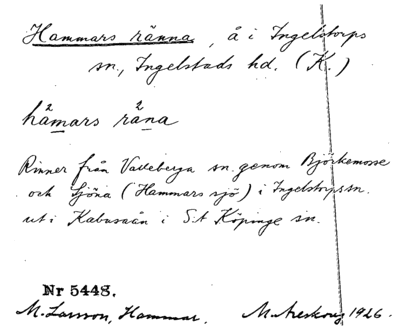 Hammars ränna, å i Ingelstorps
sn., Ingelstads hd. (K.)
hämars räna
Rinner från Valleberga sn. genom Björkemosse
och Sjöna (Hammars sjö) i Ingelstorps sn.
ut i Kabusaån i S:t Köpinge sn.
Nr 5448.
M. Larsson, Hammar. M. Areskoug 1926.